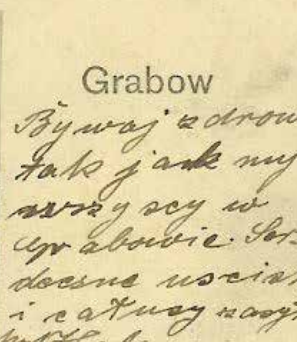 Grabow
Bywaj zdrow
tak jak my
wszyscy w
Grabowie. Ser
deczne uścis
i całusy zasył